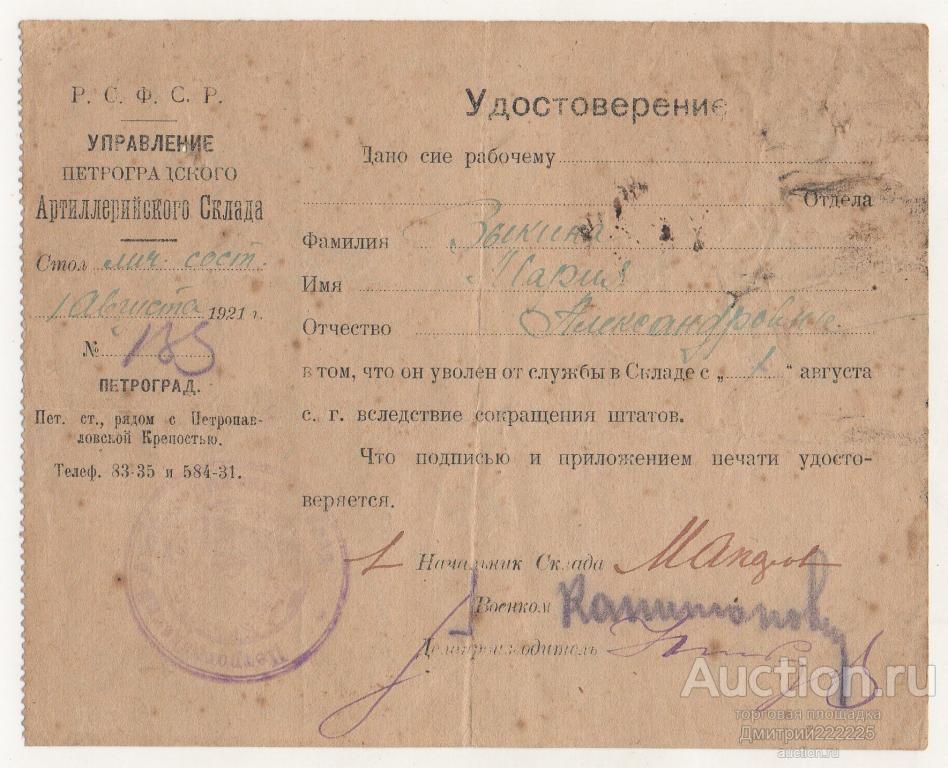 Р. С. Ф. С. Р.
УПРАВЛЕНИЕ
ПЕТРОГРАДСКОГО
Артиллерийского Склада
Стол лич. сост.
1 Августа 1921 г.
№ 185
ПЕТРОГРАД.
Пет. ст., рядом с Петропав-
ловской Крепостью.
Телеф. 83-35 и 584-31.
Удостоверение
Дано сие рабочему
Отдела
Фамилия Зыкина
Имя Мария
Отчество Александровна
в том, что он уволен от службы в Складе с „ 1 “ августа
с. г. вследствие сокращения штатов.
Что подписью и приложением печати удосто-
веряется.
Начальник Склада
Военком
Делопроизводитель
Auction.ru
торговая площадка
Дмитрий222225
auction.ru